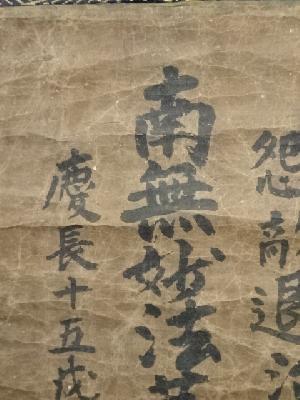 怨敵退
南無妙法
慶長十五戌